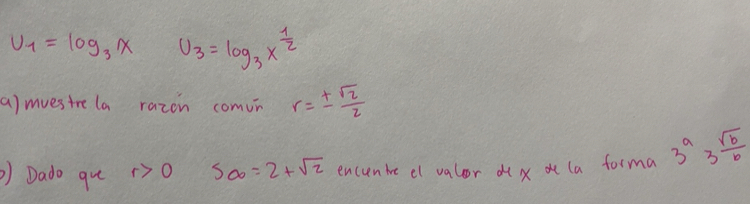 U₁ = log₃ x U₃ = log₃ x^{1/2}
a) muestre la razón común r = ± √2/2
) Dado que r>0 S∞ = 2+√2 encuentre el valor de x de la forma 3^a 3^{√b/b}